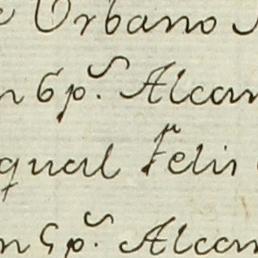 Urbano
n 6 p.s Alcan
qual Felis
n 5 p.s Alcan